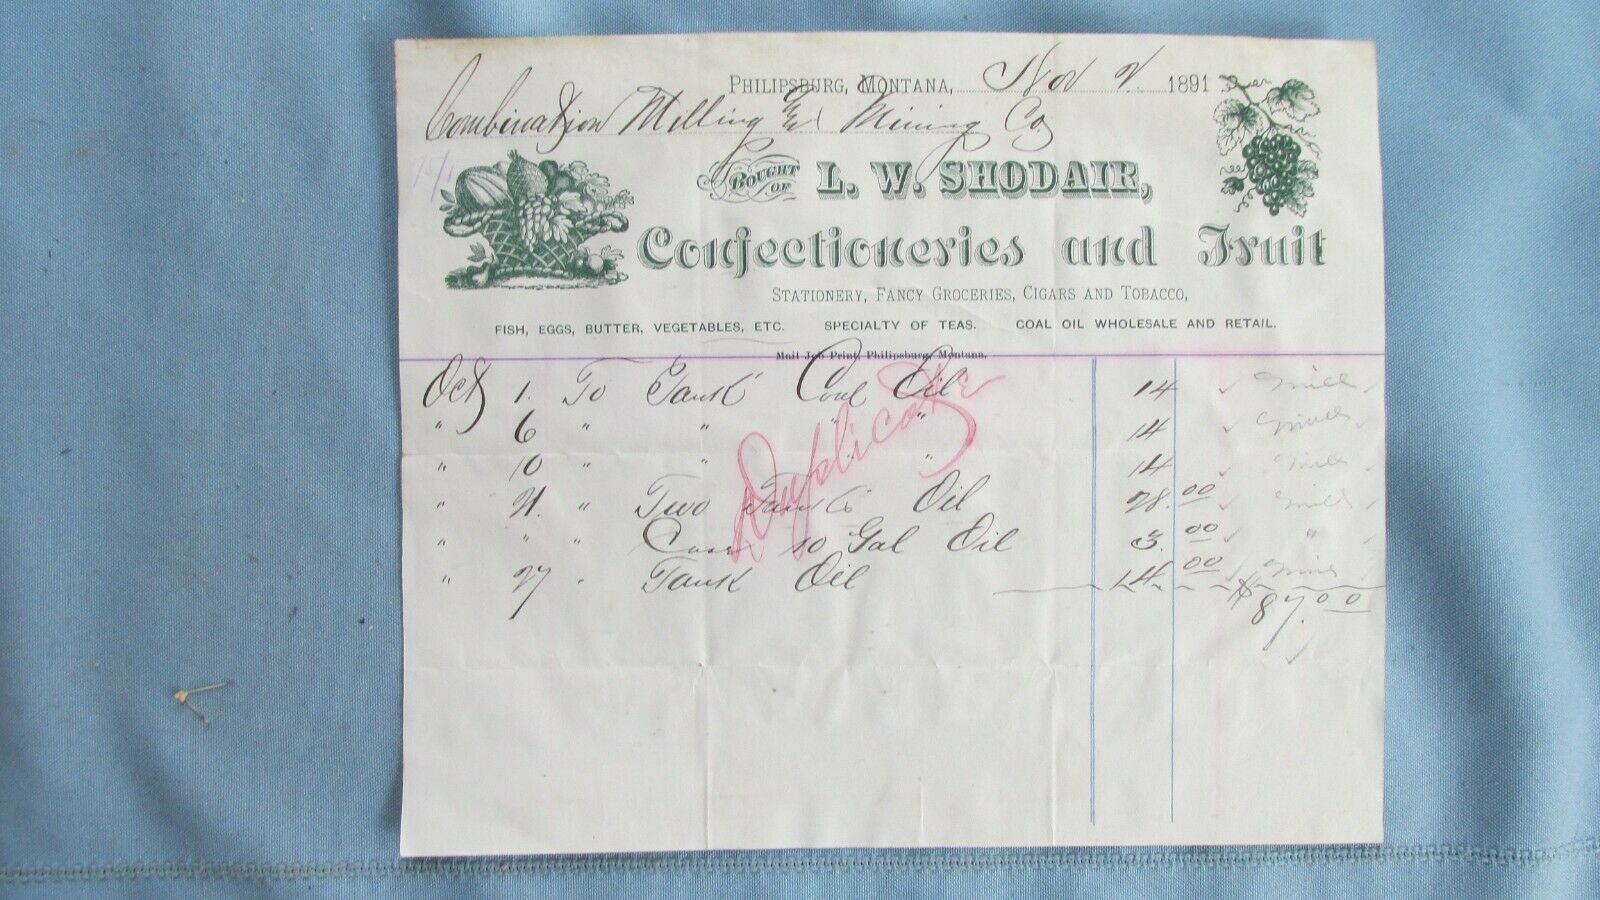 Philipsburg, Montana, Nov 2 1891
Combination Milling & Mining Co
Bought of L. W. Shodair,
Confectioneries and Fruit
Stationery, Fancy Groceries, Cigars and Tobacco,
FISH, EGGS, BUTTER, VEGETABLES, ETC. SPECIALTY OF TEAS. COAL OIL WHOLESALE AND RETAIL.
Mail Job Print, Philipsburg, Montana.
Oct 1. To Tank Coal Oil 14 ✓ mill ✓
" 6 " " " " 14 ✓ mill ✓
" 10 " " " " 14 ✓ mill ✓
" 21. " Two Tanks Oil 28.00 ✓ mill ✓
" " " Case 10 Gal Oil 3.00 ✓ " ✓
" 27 " Tank Oil 14.00 ✓ mine ✓
$87.00
✓
Duplicate